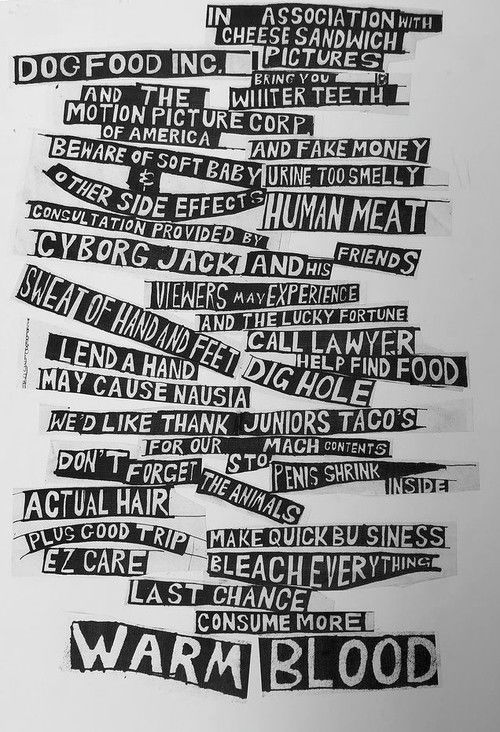 IN ASSOCIATION WITH
CHEESE SANDWICH
PICTURES
DOGFOOD INC.
BRING YOU
AND THE WIIITER TEETH
MOTION PICTURE CORP
OF AMERICA
BEWARE OF SOFT BABY AND FAKE MONEY
& URINE TOO SMELLY
OTHER SIDE EFFECTS HUMAN MEAT
CONSULTATION PROVIDED BY
CYBORG JACK AND HIS FRIENDS
SWEAT OF HAND AND FEET
VIEWERS MAY EXPERIENCE
AND THE LUCKY FORTUNE
CALL LAWYER
LEND A HAND HELP FIND FOOD
MAY CAUSE NAUSIA DIG HOLE
WE'D LIKE THANK JUNIORS TACO'S
FOR OUR MACH CONTENTS
DON'T FORGET STO PENIS SHRINK
THE ANIMALS INSIDE
ACTUAL HAIR
PLUS GOOD TRIP MAKE QUICK BU'SINESS
EZ CARE BLEACH EVERYTHING
LAST CHANCE
CONSUME MORE
WARM BLOOD